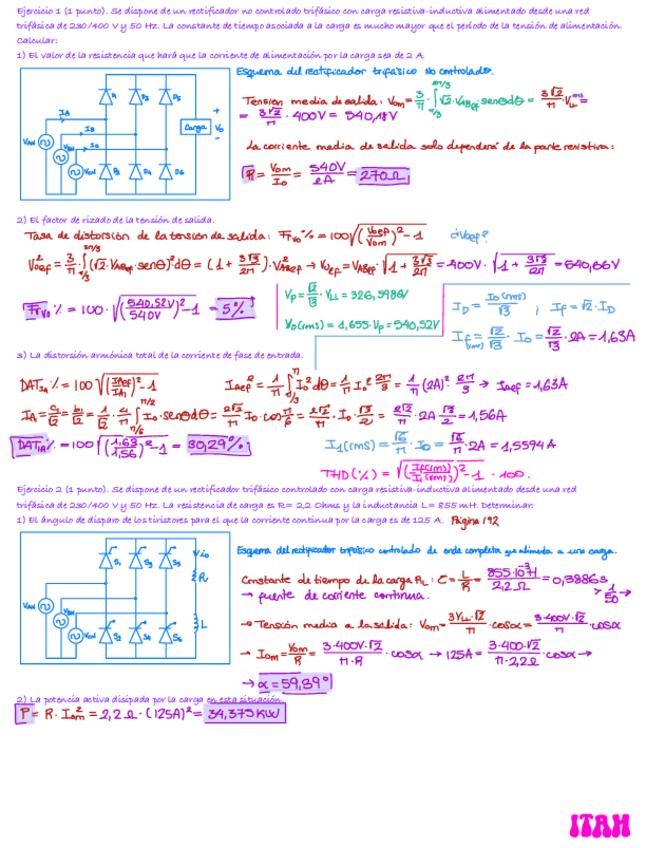 Ejercicio 1 (1 punto). Se dispone de un rectificador no controlado trifásico con carga resistiva-inductiva alimentado desde una red
trifásica de 230/400 V y 50 Hz. La constante de tiempo asociada a la carga es mucho mayor que el período de la tensión de alimentación.
Calcular:
1) El valor de la resistencia que hará que la corriente de alimentación por la carga sea de 2 A.
Esquema del rectificador trifásico No controlado.
Tensión media de salida: Vom = 3/π · ∫ √2·VABef·senθdθ = 3√2/π · VLL =
= 3√2/π · 400V = 540,18V
La corriente media de salida solo dependerá de la parte resistiva:
R = Vom/Io = 540V/2A = 270Ω
Carga
2) El factor de rizado de la tensión de salida.
Tasa de distorsión de la tensión de salida: FrVo % = 100√((Voef/Vom)² - 1 ¿Voef?
Voef² = 3/π · ∫ (√2·VABef·senθ)²dθ = (1 + 3√3/2π)·VABef² → Voef = VABef·√(1 + 3√3/2π) = 400V·√(1 + 3√3/2π) = 540,66V
FrVo % = 100·√((540,52V/540V)² - 1 = 5%
Vp = √2/√3 · VLL = 326,5986V
Vo(rms) = 1,655·Vp = 540,52V
ID = Io(rms)/√3 ; If = √2·ID
If(rms) = √2/√3 · Io = √2/√3 · 2A = 1,63A
3) La distorsión armónica total de la corriente de fase de entrada.
DATIA % = 100√((IAef/IA1)² - 1 IAef² = 1/π ∫ Io²dθ = 1/π Io² 2π/3 = 1/π (2A)² 2π/3 → IAef = 1,63A
IA = a/√2 = b1/√2 = 1/√2 · 4/π ∫ Io·senθdθ = 2√2/π Io·cos π/6 = 2√2/π · Io · √3/2 = 2√2/π · 2A √3/2 = 1,56A
DATIA % = 100√((1,63/1,56)² - 1 = 30,29%
I1(rms) = √6/π · Io = √6/π · 2A = 1,5594A
THD(%) = √((If(rms)/I1(rms))² - 1 · 100.
Ejercicio 2 (1 punto). Se dispone de un rectificador trifásico controlado con carga resistiva-inductiva alimentado desde una red
trifásica de 230/400 V y 50 Hz. La resistencia de carga es R= 2,2 Ohms y la inductancia L= 855 mH. Determinar:
1) El ángulo de disparo de los tiristores para el que la corriente continua por la carga es de 125 A. Página 192
Esquema del rectificador trifásico controlado de onda completa que alimenta a una carga.
Constante de tiempo de la carga RL: τ = L/R = 855·10⁻³H/2,2Ω = 0,3886s > 1/50 →
→ fuente de corriente continua.
→ Tensión media a la salida: Vom = 3VLL·√2/π · cosα = 3·400V·√2/π · cosα
→ Iom = Vom/R = 3·400V·√2/π·R · cosα → 125A = 3·400·√2/π·2,2Ω · cosα →
→ α = 59,39°
2) La potencia activa disipada por la carga en esta situación.
P = R·Iom² = 2,2Ω·(125A)² = 34,375KW
ITAH